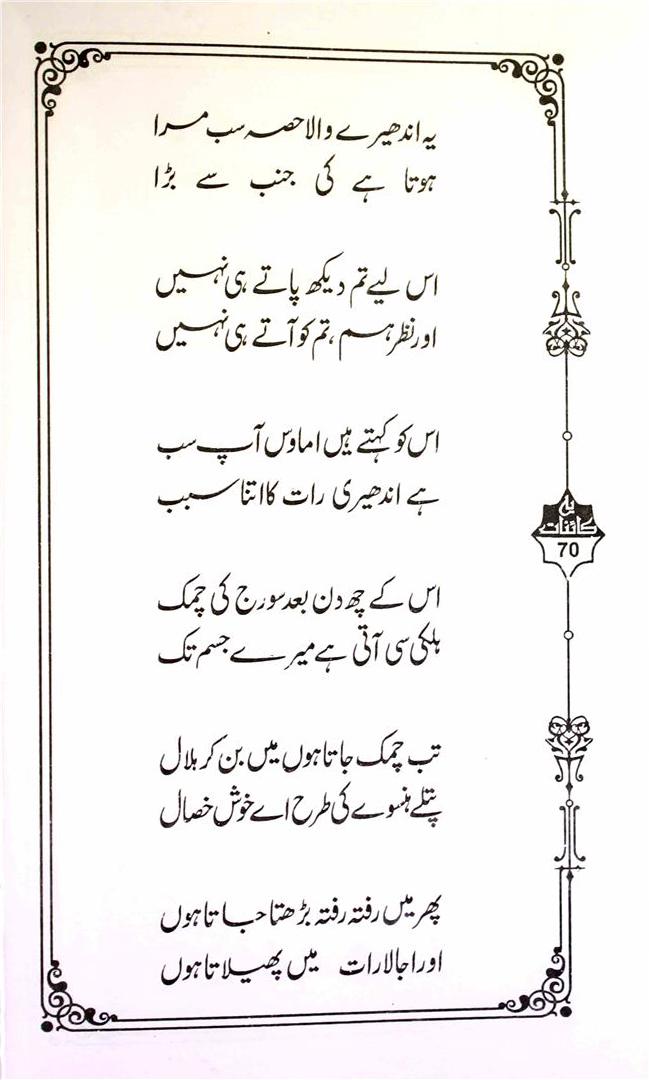 یہ اندھیرے والا حصہ سب مرا
ہوتا ہے کی جنب سے بڑا
اس لیے تم دیکھ پاتے ہی نہیں
اور نظر ہم ، تم کو آتے ہی نہیں
اس کو کہتے ہیں اماوس آپ سب
ہے اندھیری رات کا اتنا سبب
اس کے چھ دن بعد سورج کی چمک
ہلکی سی آتی ہے میرے جسم تک
تب چمک جاتا ہوں میں بن کر ہلال
پتلے ہنسوے کی طرح اے خوش خصال
پھر میں رفتہ رفتہ بڑھتا جاتا ہوں
اور اجالا رات میں پھیلاتا ہوں
یہ کائنات
70